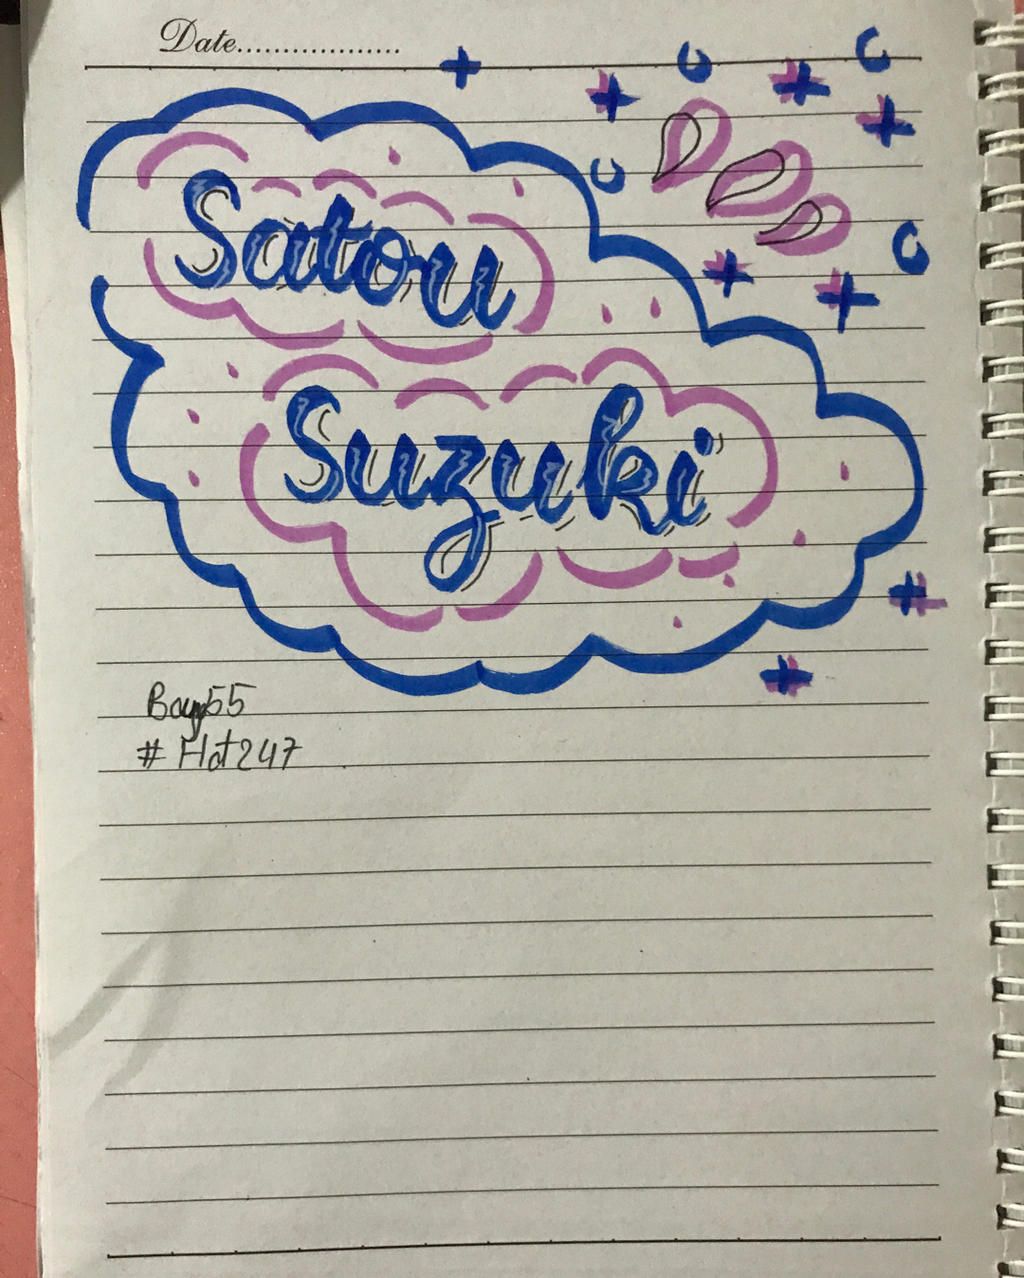 Date..................
Satou
Suzuki
Boy55
# Hot247